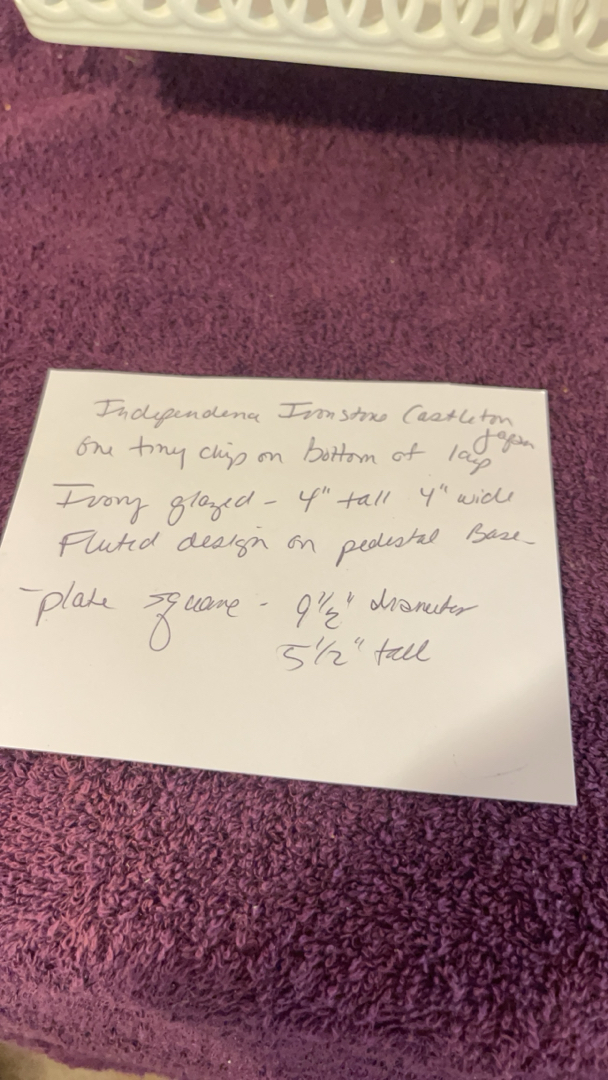 Independena Ironstone Castleton
Japan
one tiny chip on bottom of
Ivory glazed - 4" tall 4" wide
Fluted design on pedestal Base
-plate square - 9½" diameter
5½" tall